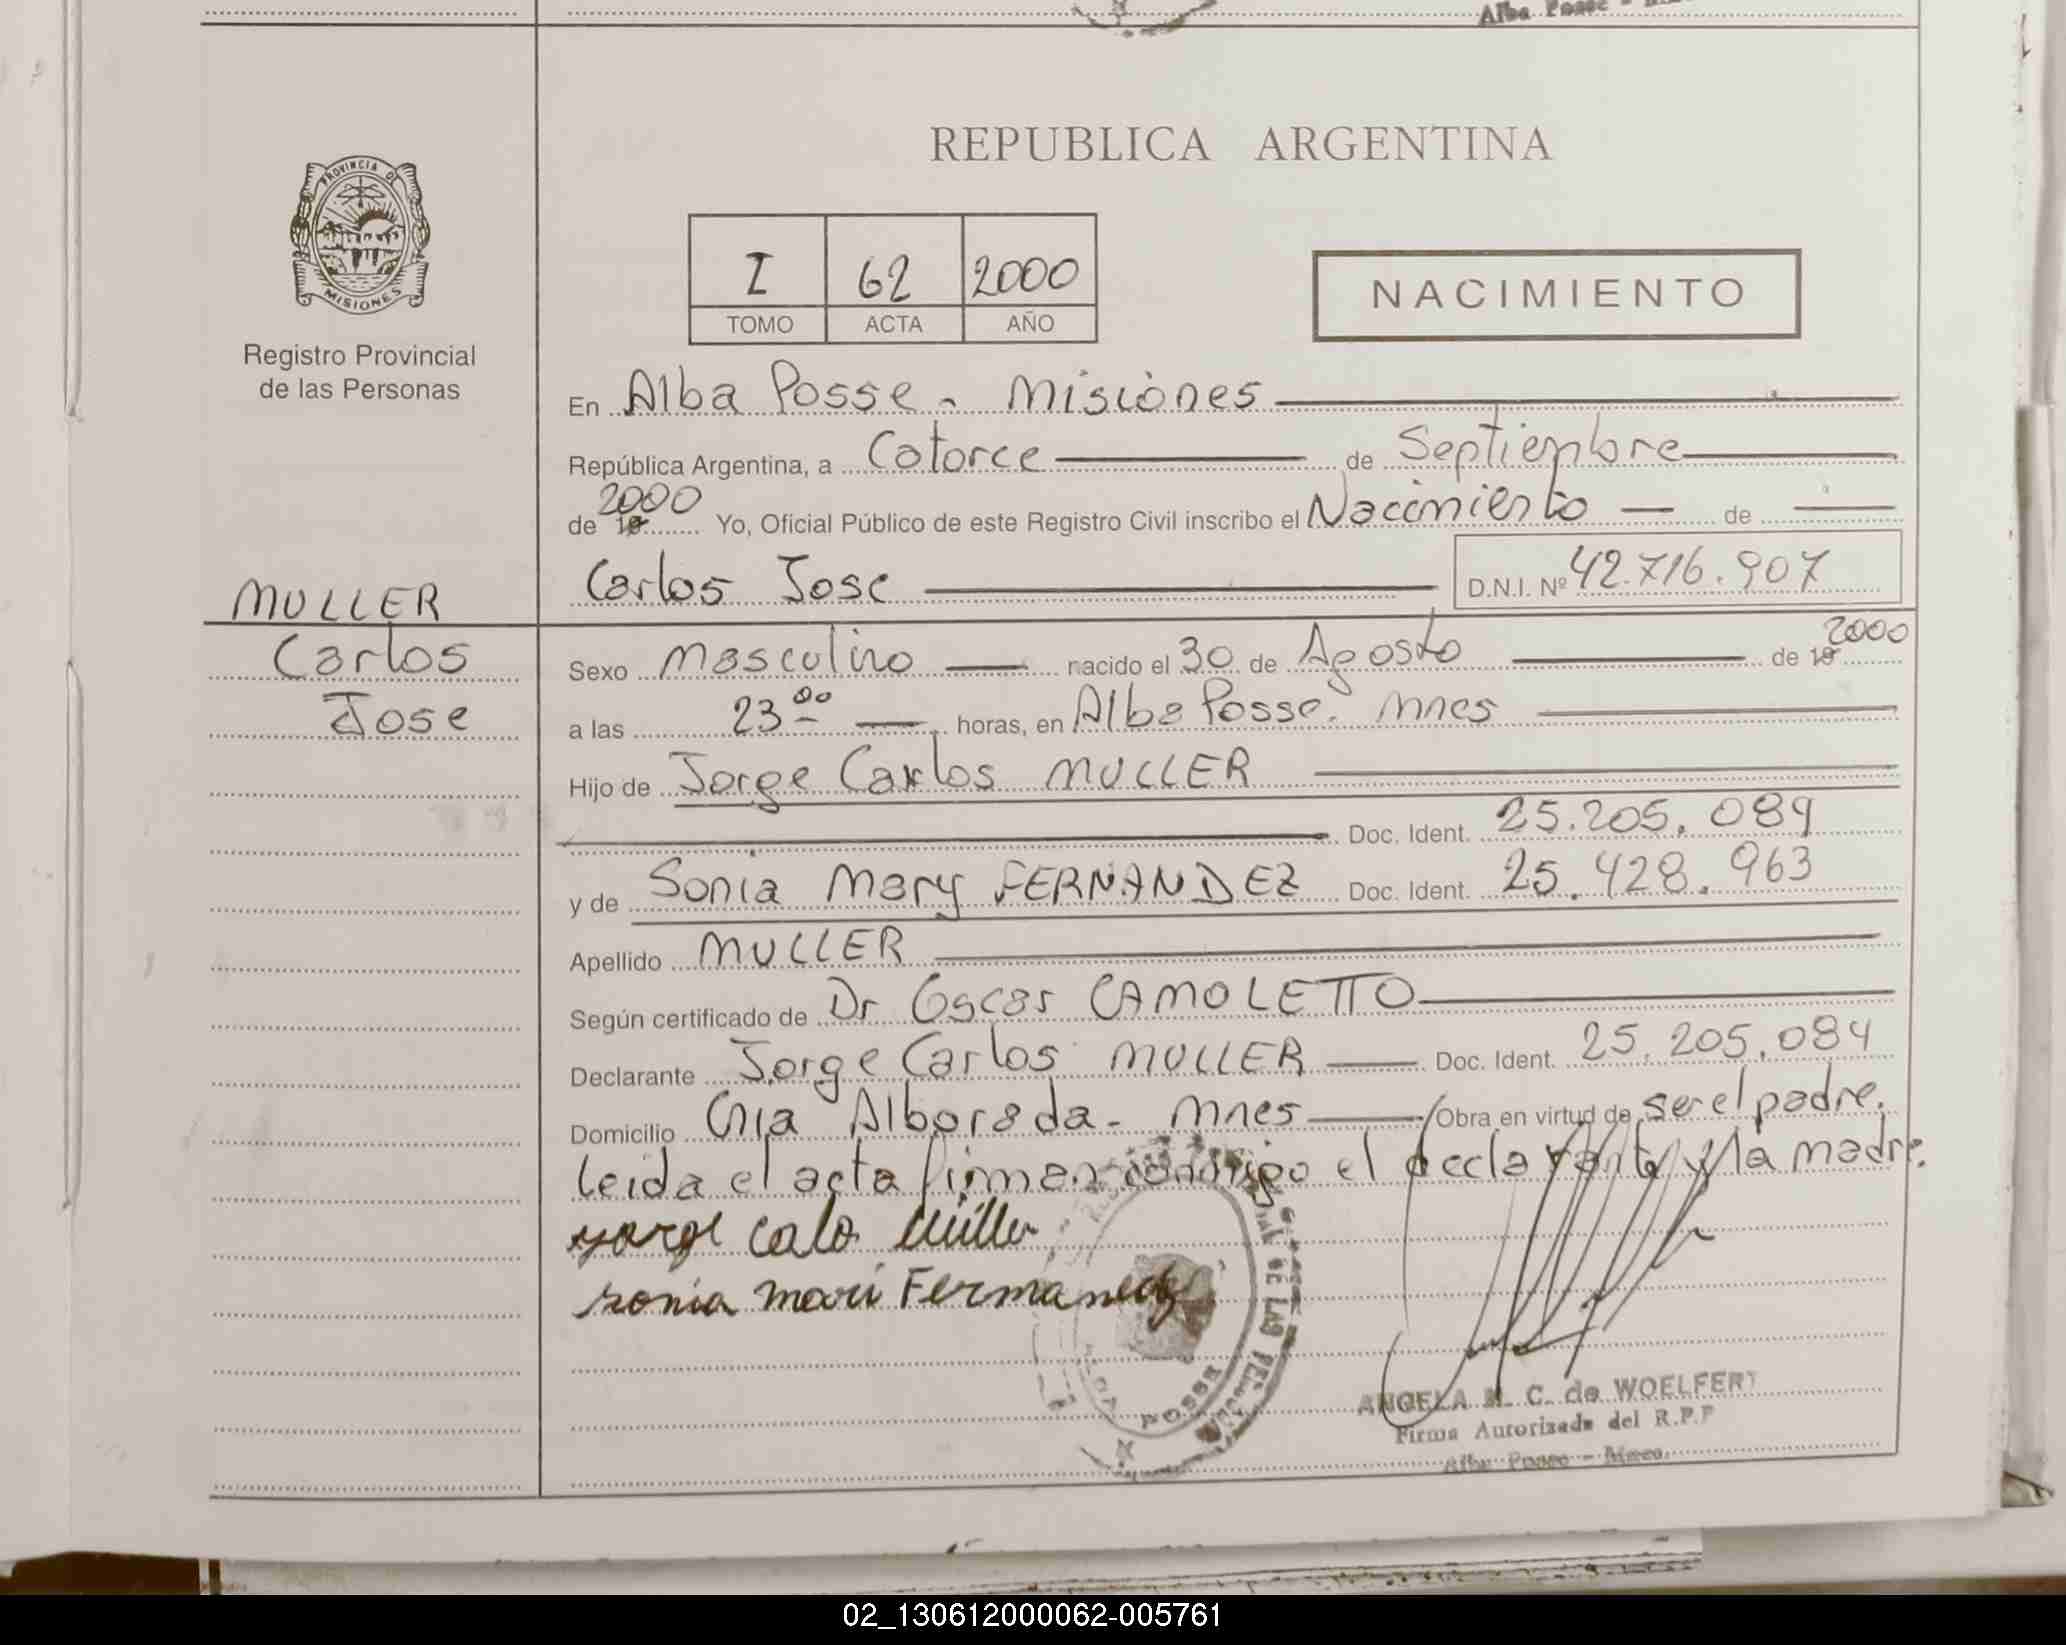 Alba Posse -
PROVINCIA DE
MISIONES
Registro Provincial
de las Personas
REPUBLICA ARGENTINA
I 62 2000
TOMO ACTA AÑO
NACIMIENTO
En Alba Posse - Misiones
República Argentina, a Catorce de Septiembre
de 19 2000 Yo, Oficial Público de este Registro Civil inscribo el Nacimiento de
Carlos Jose D.N.I. Nº 42.716.907
MULLER
Carlos
Jose
Sexo Masculino nacido el 30 de Agosto de 19 2000
a las 23 00 horas, en Alba Posse. Mnes
Hijo de Jorge Carlos MULLER
Doc. Ident. 25.205.084
y de Sonia Mary FERNANDEZ Doc. Ident. 25.428.963
Apellido MULLER
Según certificado de Dr Oscar CAMOLETTO
Declarante Jorge Carlos MULLER Doc. Ident. 25.205.084
Domicilio Cnia Alborada - Mnes Obra en virtud de ser el padre.
Leida el acta firman conmigo el declarante y la madre.
yorge Calo Muller
sonia mari Fermanedz
POSSE
ANGELA M. C. de WOELFERT
Firma Autorizada del R.P.P
Alba Posse - Mnes.
02_130612000062-005761